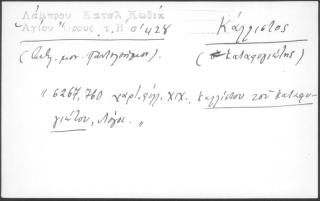 Λάμπρου Κατάλ Κωδίκ
Αγίου Όρους τ. Β σ. 428
Κάλλιστος
( μον. Παντελεήμον.)
( Καταφυγιώτης)
" 6267, 760 χαρτ. φύλ. XIX. Καλλίστου τοῦ Καταφυ-
γιώτου, Λόγοι. "